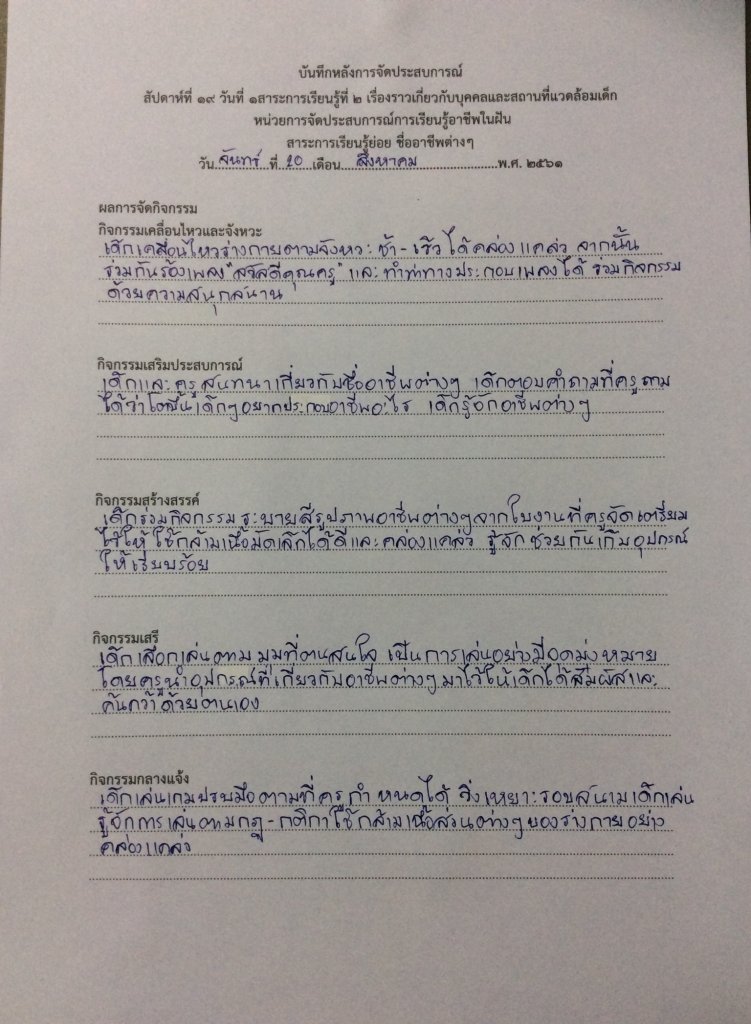 บันทึกหลังการจัดประสบการณ์
สัปดาห์ที่ ๑๙ วันที่ ๑สาระการเรียนรู้ที่ ๒ เรื่องราวเกี่ยวกับบุคคลและสถานที่แวดล้อมเด็ก
หน่วยการจัดประสบการณ์การเรียนรู้อาชีพในฝัน
สาระการเรียนรู้ย่อย ชื่ออาชีพต่างๆ
วัน จันทร์ ที่ 20 เดือน สิงหาคม พ.ศ. ๒๕๖๑
ผลการจัดกิจกรรม
กิจกรรมเคลื่อนไหวและจังหวะ
เด็กเคลื่อนไหวร่างกายตามจังหวะช้า - เร็ว ได้คล่องแคล่ว จากนั้น
ร่วมกันร้องเพลง "สวัสดีคุณครู" และทำท่าทางประกอบเพลงได้ ร่วมกิจกรรม
ด้วยความสนุกสนาน
กิจกรรมเสริมประสบการณ์
เด็กและครูสนทนาเกี่ยวกับชื่ออาชีพต่างๆ เด็กตอบคำถามที่ครูถาม
ได้ว่าโตขึ้นเด็กๆอยากประกอบอาชีพอะไร เด็กรู้จักอาชีพต่างๆ
กิจกรรมสร้างสรรค์
เด็กร่วมกิจกรรมระบายสีรูปภาพอาชีพต่างๆจากใบงานที่ครูจัดเตรียม
ไว้ให้ ใช้กล้ามเนื้อมัดเล็กได้ดีและคล่องแคล่ว รู้จักช่วยกันเก็บอุปกรณ์
ให้เรียบร้อย
กิจกรรมเสรี
เด็กเลือกเล่นตามมุมที่ตนสนใจ เป็นการเล่นอย่างมีจุดมุ่งหมาย
โดยครูนำอุปกรณ์ที่เกี่ยวกับอาชีพต่างๆมาไว้ให้เด็กได้สัมผัสและ
ค้นคว้าด้วยตนเอง
กิจกรรมกลางแจ้ง
เด็กเล่นเกมปรบมือตามที่ครูกำหนดได้ วิ่งเหยาะรอบสนามเด็กเล่น
รู้จักการเล่นตามกฎ - กติกา ใช้กล้ามเนื้อส่วนต่างๆของร่างกายอย่าง
คล่องแคล่ว